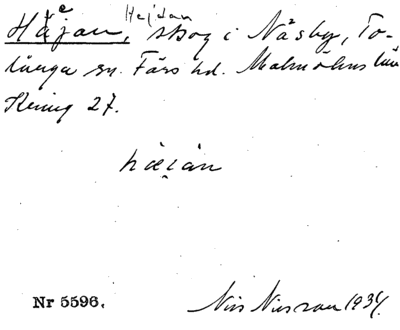 Häjan, Hejdan skog i Näsby, To-
långa sn. Färs hd. Malmöhus län
Kening 27.
hæi̯àn
Nr 5596.
Nils Nilsson 1934.